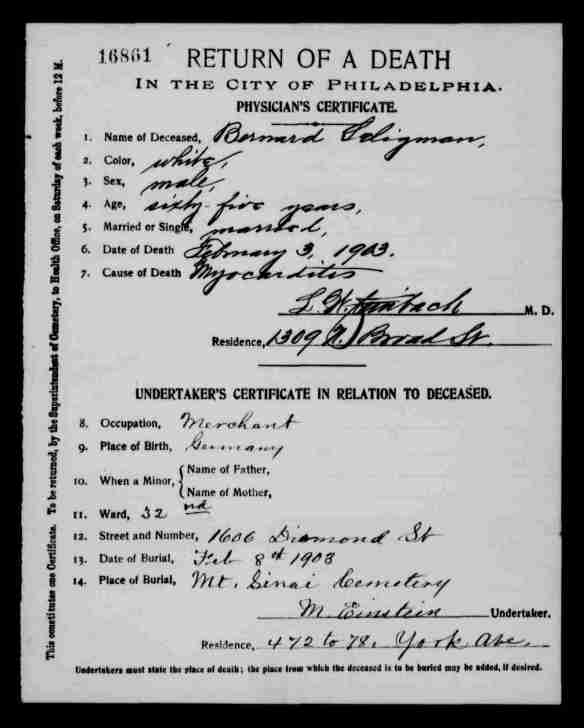 16861 RETURN OF A DEATH
IN THE CITY OF PHILADELPHIA.
PHYSICIAN'S CERTIFICATE.
1. Name of Deceased, Bernard Seligman,
2. Color, white,
3. Sex, male,
4. Age, sixty-five years,
5. Married or Single, married,
6. Date of Death February 3, 1903.
7. Cause of Death Myocarditis
L. W. M. D.
Residence, 1309 N. Broad St.
UNDERTAKER'S CERTIFICATE IN RELATION TO DECEASED.
8. Occupation, Merchant
9. Place of Birth, Germany
10. When a Minor, Name of Father,
Name of Mother,
11. Ward, 32nd
12. Street and Number, 1606 Diamond St
13. Date of Burial, Feb 8th 1903
14. Place of Burial, Mt. Sinai Cemetery
M. Einstein Undertaker.
Residence, 472 to 78. York Ave.
Undertakers must state the place of death; the place from which the deceased is to be buried may be added, if desired.
This constitutes one Certificate. To be returned, by the Superintendent of Cemetery, to Health Office, on Saturday of each week, before 12 M.